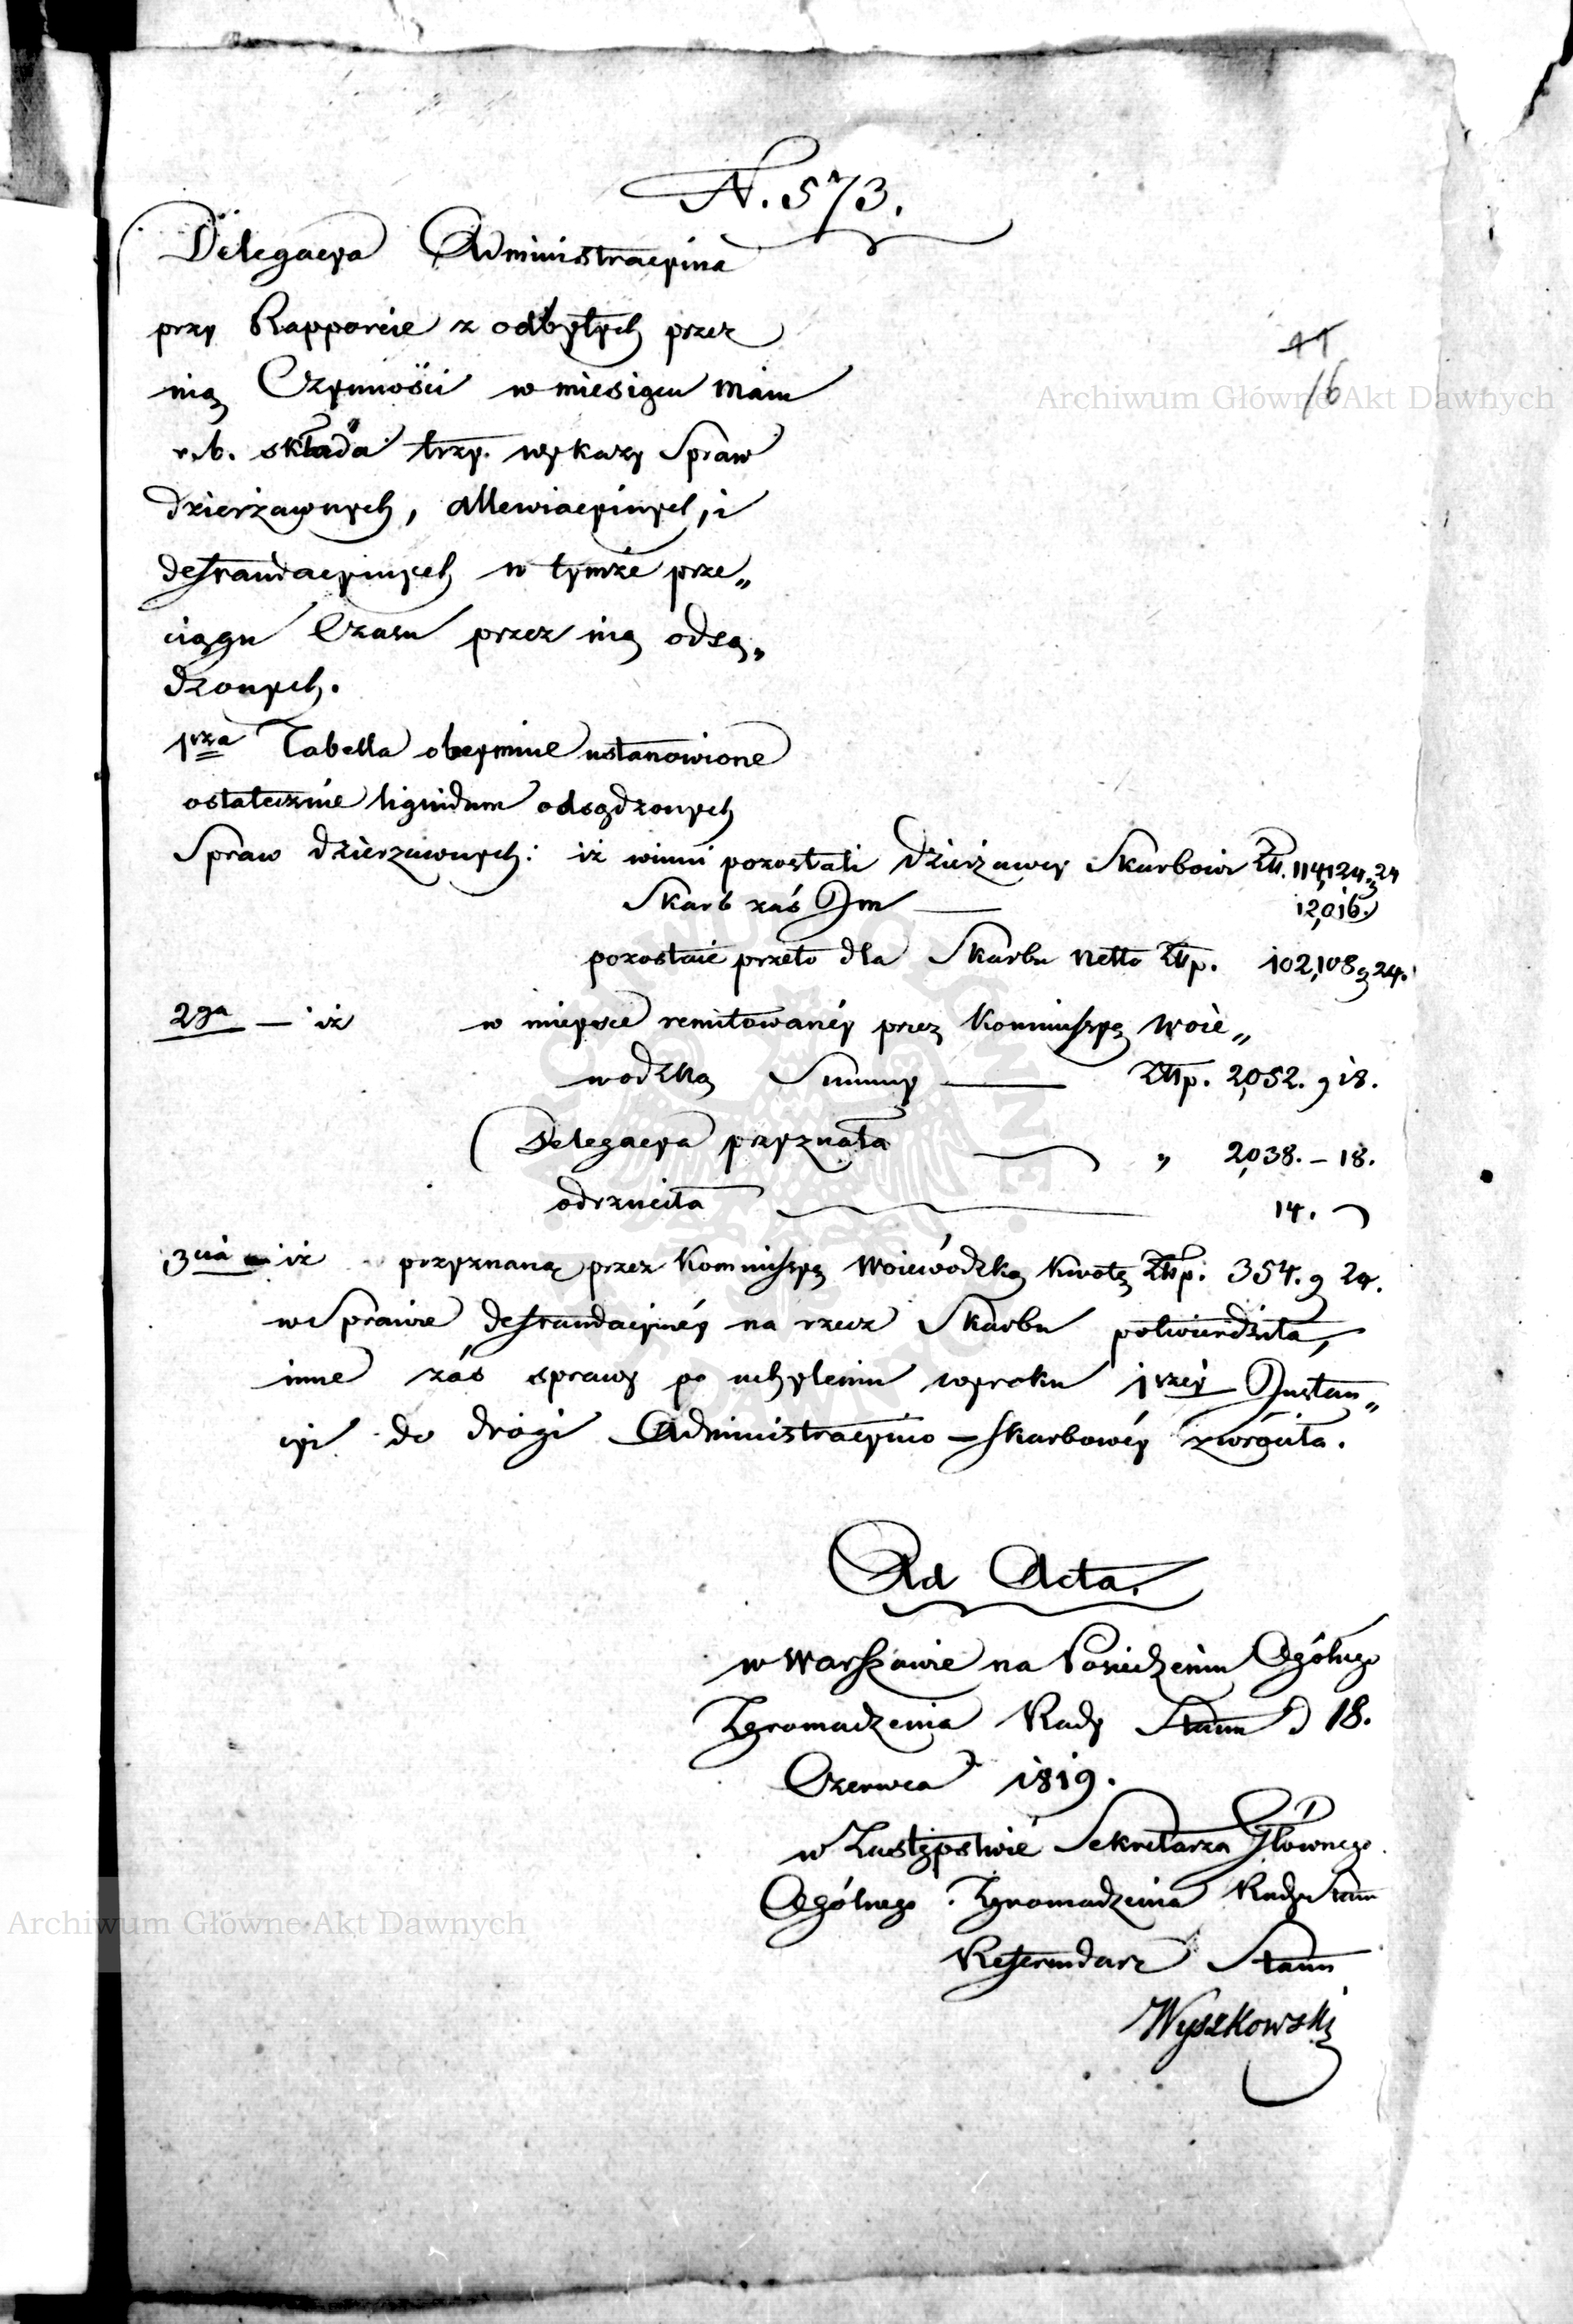 N. 573.
Delegacya Administracyina
przy Rapporcie z odbytych przez
nią Czynności w miesiącu Maiu
r. b. składa trzy wykazy Spraw
dzierżawnych, allewiacyinych, i
defraudacyinych w tymże prze„
ciągu Czasu przez nią odsą„
dzonych.
11
16
1sza Tabella obeymuie ustanowione
ostatecznie liquidum odsądzonych
Spraw dzierzawnych: iż winni pozostali dzierżawcy Skarbowi Złt. 114,124 g 24
Skarb zaś Im — 12,016.
pozostaie przeto dla Skarbu Netto Złtp. 102,108 g 24.
2ga — iż w mieysce remitowaney przez Kommissyą Woie„
wodzką Summy — Złtp. 2,052. g 18.
Delegacya przyznała „ 2,038. – 18.
odrzuciła 14. –
3cia – iż przyznaną przez Kommissyą Woiewódzką kwotę Złtp. 354. g 24.
w Sprawie defraudacyiney na rzecz Skarbu potwierdziła,
inne zaś sprawy po uchyleniu wyroku 1szey Instan„
cyi do drogi Administracyino – Skarbowéy zwróciła.
Ad Acta.
w Warszawie na Posiedzeniu Ogólnego
Zgromadzenia Rady Stanu d 18.
Czerwca 1819.
w Zastępstwie Sekretarza Głównego
Ogólnego Zgromadzenia Rady Stanu
Referendarz Stanu
Wyszkowski
Archiwum Główne Akt Dawnych
Archiwum Główne Akt Dawnych